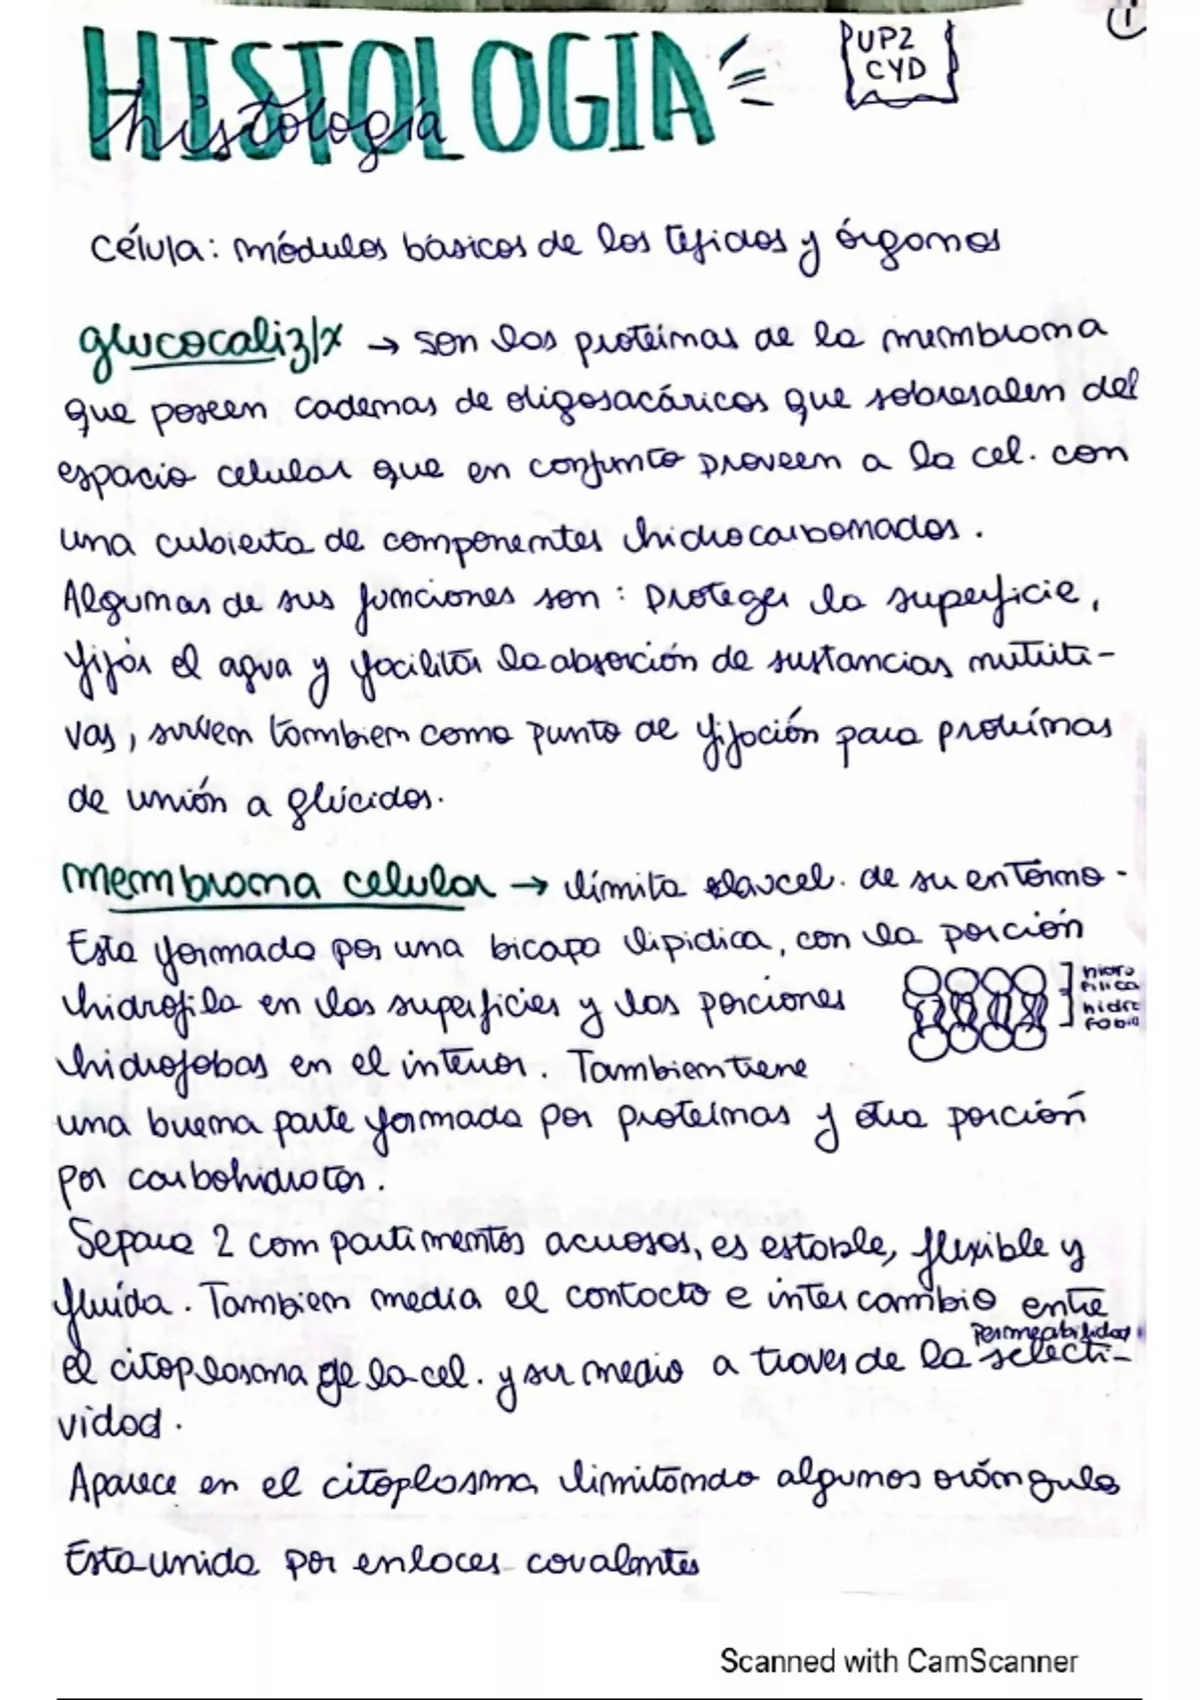 1
HISTOLOGIA
histología
UP2
CYD
célula: módulos básicos de los tejidos y órganos
glucocaliz/x → son las proteínas de la membrana
que poseen cadenas de oligosacáricos que sobresalen del
espacio celular que en conjunto proveen a la cel. con
una cubierta de componentes hidrocarbonados.
Algunas de sus funciones son: Proteger la superficie,
fijar el agua y facilitar la absorción de sustancias nutriti-
vas, sirven tambien como punto de fijación para proteínas
de unión a glúcidos.
membrana celular → límita la cel. de su entorno.
Esta formada por una bicapa lipidica, con la porción
hidrofila en las superficies y las porciones
hidrofobas en el interior. Tambien tiene
hidro
filica
hidro
fobia
una buena parte formada por proteínas y otra porción
por carbohidratos.
Separa 2 compartimentos acuosos, es estable, flexible y
fluída. Tambien media el contacto e intercambio entre
Permeabilidad
el citoplasma de la cel. y su medio a traves de la selecti-
vidad.
Aparece en el citoplasma limitando algunos orángulos
Esta unida por enlaces covalentes
Scanned with CamScanner